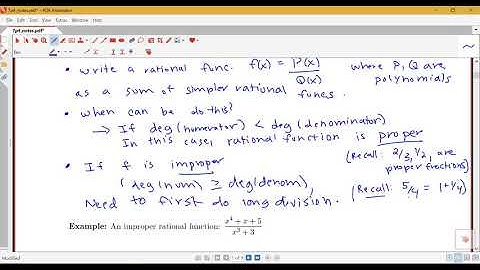 7pf_notes.pdf* - PDF Annotator
File Edit View
7pf_notes.pdf*
• write a rational func. f(x) = P(x)/Q(x) where P, Q are polynomials
as a sum of simpler rational funcs.
• When can be do this?
→ If deg (numerator) < deg (denominator)
In this case, rational function is proper
(Recall: 2/3, 1/2, are proper fractions)
• If f is improper
(deg(num) ≥ deg(denom),
Need to first do long division.
(Recall: 5/4 = 1+1/4)
Example: An improper rational function: x⁴ + x + 5 / x³ + 3
Modified